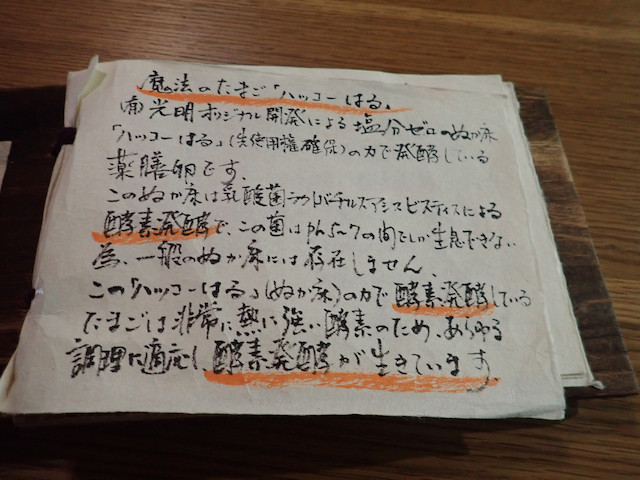 魔法のたまご「ハッコーはる」
㈲光明オリジナル開発による塩分ゼロのぬか床
「ハッコーはる」(先使用権確保)の力で発酵している
薬膳卵です。
このぬか床は乳酸菌ラクトバチルスアシスピスティスによる
酵素発酵で、この菌はPh5〜7の間でしか生息できない
為、一般のぬか床には存在しません。
この「ハッコーはる」(ぬか床)の力で酵素発酵している
たまごは非常に熱に強い酵素のため、あらゆる
調理に適応し、酵素発酵が生きています